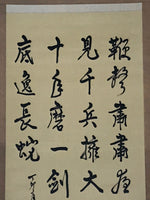 鞭聲肅肅夜
見千兵擁大
十年磨一劍
底逸長蛇